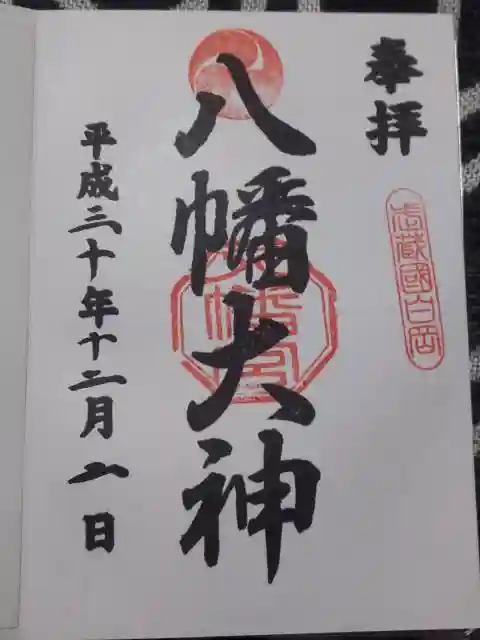 奉拝
武蔵國白岡
八幡大神
平成三十年十二月 日